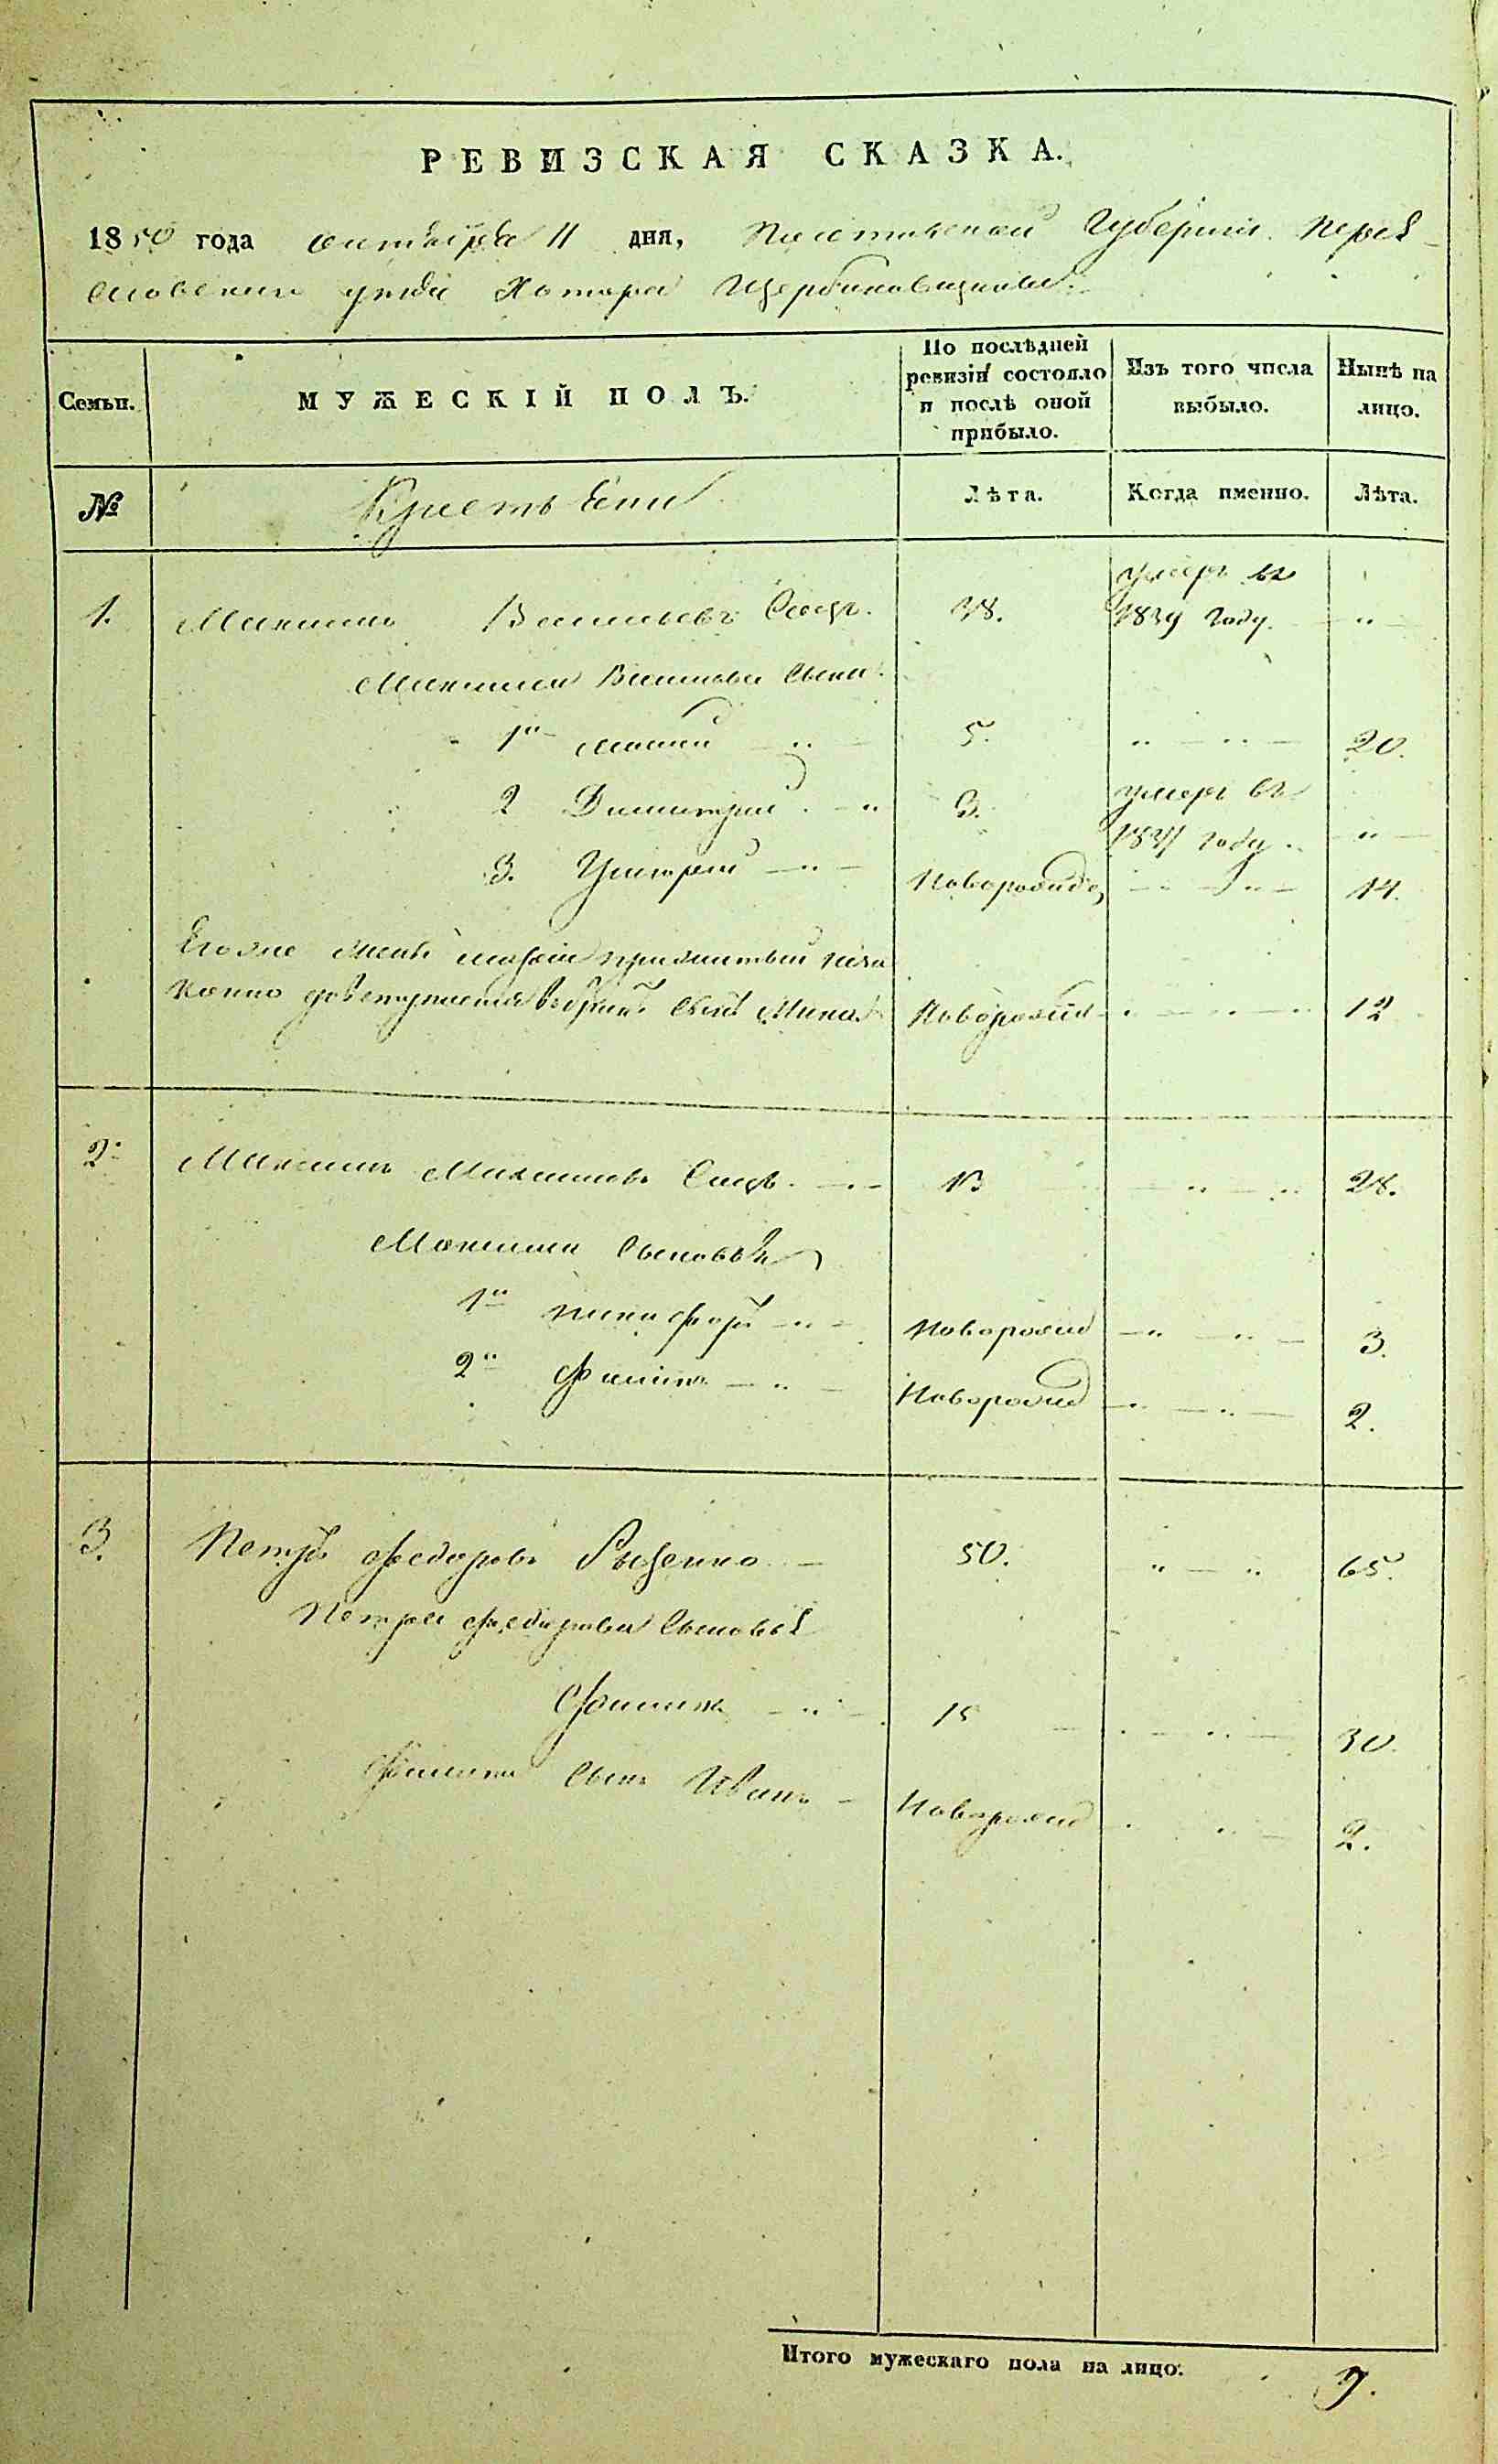 РЕВИЗСКАЯ СКАЗКА.
1850 года октября 11 дня, Полтавской Губернии Перея-
словскаго уезда Хутора Щербиновщины.
Семьи.
МУЖЕСКІЙ ПОЛЪ.
По послѣдней ревизіи состояло и послѣ оной прибыло.
Изъ того числа выбыло.
Нынѣ на лицо.
№
Крестьяни
Лѣта.
Когда именно.
Лѣта.
1. Максимъ Васильевъ 38. умеръ въ 1839 году. „
Максима Васильева сыны.
1й „ 5. „ „ 20.
2 Димитрий „ 3. умеръ въ 1841 году „
3. Григорий „ Новорожд „ „ 14.
Его же жены прижитый неза
конно сынъ Новорожд „ „ 12
2. Максимъ „ 13 „ „ 28.
Максима сыновья
1й Никифоръ „ Новорожд „ „ 3.
2й Филипъ „ Новорожд „ „ 2.
3. Петръ Федоровъ 50. „ „ 65.
Петра Федорова сыновья
Филипъ „ 15 „ „ 30.
Филипа сынъ Иванъ Новорожд „ „ 2.
Итого мужескаго пола на лицо. 9.